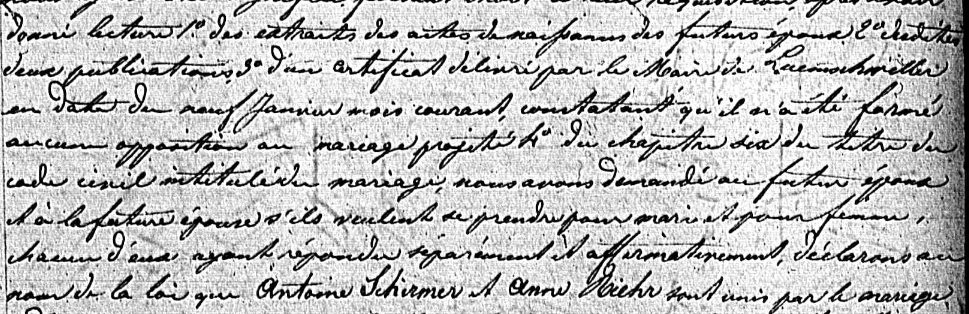 donné lecture 1° des extraits des actes de naissances des futurs époux 2° desdites
deux publications, 3° d'un certificat délivré par le Maire de Luemschwiller
en date du neuf Janvier mois courant, constatant qu'il n'a été formé
aucune opposition au mariage projeté 4° du chapitre six du titre du
code civil intitulé du mariage, nous avons demandé au futur époux
et à la future épouse s'ils veulent se prendre pour mari et pour femme,
chacun d'eux ayant répondu séparément et affirmativement, déclarons au
nom de la loi que Antoine Schirmer et Anne Riehr sont unis par le mariage